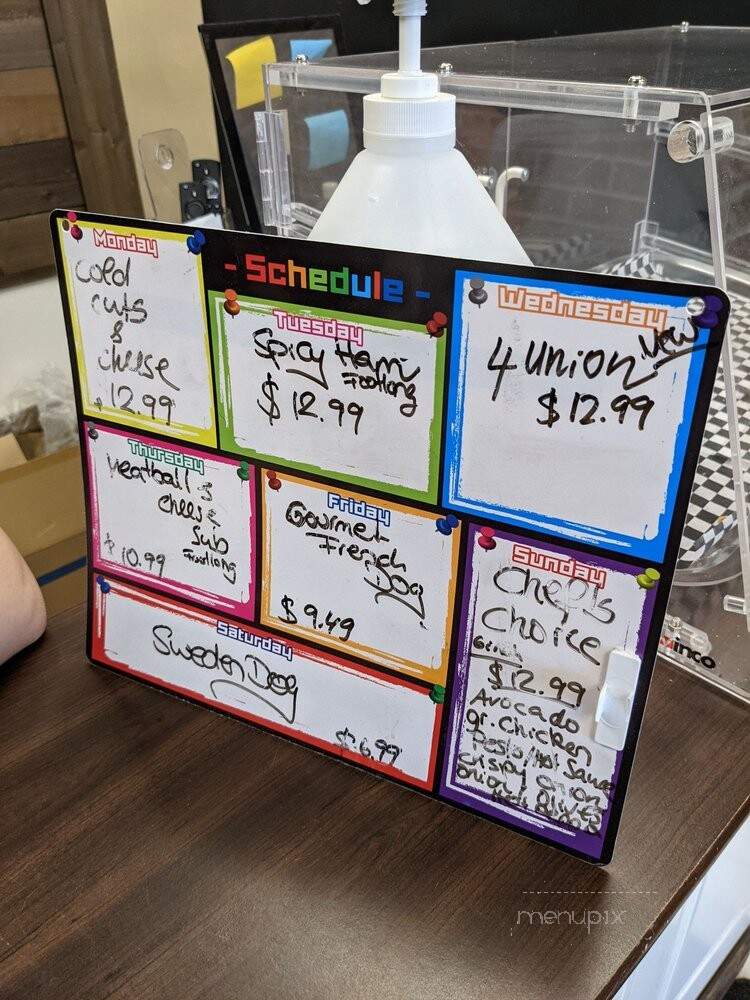 - Schedule -
Monday
cold
cuts
&
cheese
12.99
Tuesday
Spicy Ham
Footlong
$ 12.99
Wednesday
New
4 union
$ 12.99
Thursday
Meatball &
cheese
Sub
Footlong
$ 10.99
Friday
Gourmet
French
Dog
$ 9.49
Saturday
Sweden Dog
$ 6.99
Sunday
Chef's
Choice
6inch
$ 12.99
Avocado
gr. chicken
Pesto/Hot Sauce
crispy onion
onion/ Olives
winco
menupix